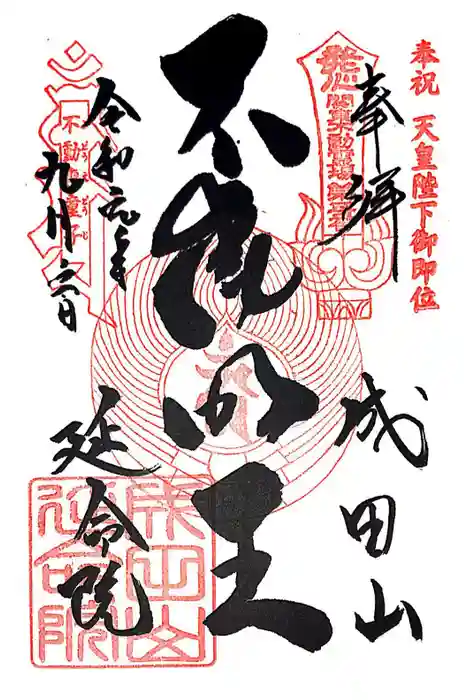 奉祝 天皇陛下御即位
奉拝
成田山
不動明王
令和元年
九月六日
延命院
成田山
延命院